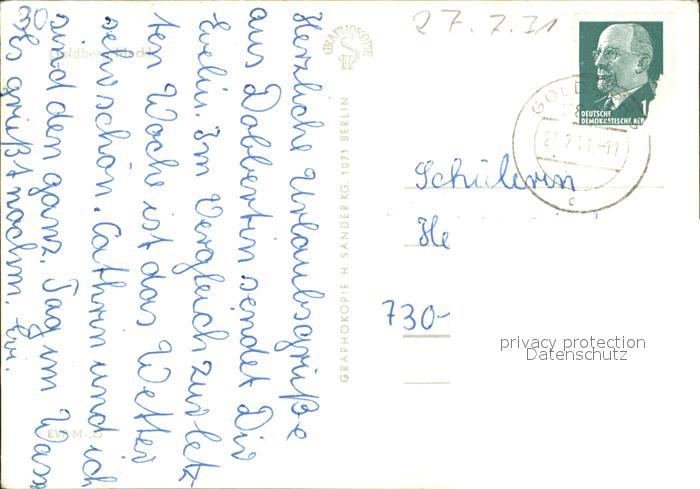 30
Goldberg Meckl
Herzliche Urlaubsgrüße
aus Dobbertin sendet Dir
Evelin. Im Vergleich zur letz
ten Woche ist das Wetter
sehr schön. Cathrin und ich
sind den ganz. Tag im Wass
Es grüßt nochm. Evi.
EVP M -,25
GRAPHOKOPIE
GRAPHOKOPIE H. SANDER KG. 1071 BERLIN
27.7.71
DEUTSCHE
DEMOKRATISCHE REP
GOLD
27.7.71.-11
c
Schülerin
He
730-
privacy protection
Datenschutz